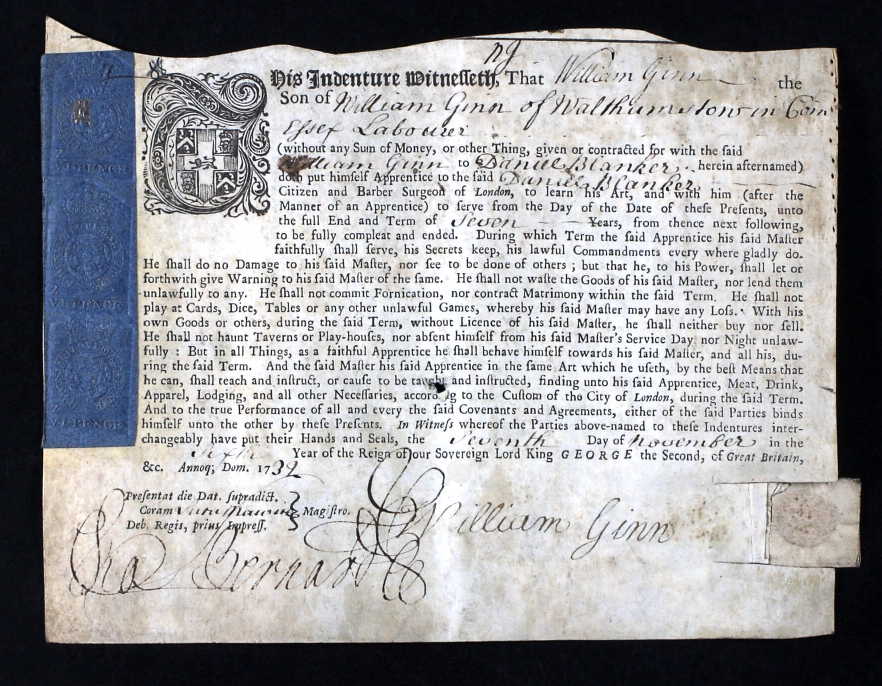 ng
His Indenture Witnesseth, That William Ginn the
Son of William Ginn of Walthumstow in Com
Essex Labourer
(without any Sum of Money, or other Thing, given or contracted for with the said
William Ginn to Daniel Blanker herein afternamed)
doth put himself Apprentice to the said Daniel Blanker
Citizen and Barber Surgeon of London, to learn his Art, and with him (after the
Manner of an Apprentice) to serve from the Day of the Date of these Presents, unto
the full End and Term of Seven Years, from thence next following,
to be fully compleat and ended. During which Term the said Apprentice his said Master
faithfully shall serve, his Secrets keep, his lawful Commandments every where gladly do.
He shall do no Damage to his said Master, nor see to be done of others ; but that he, to his Power, shall let or
forthwith give Warning to his said Master of the same. He shall not waste the Goods of his said Master, nor lend them
unlawfully to any. He shall not commit Fornication, nor contract Matrimony within the said Term. He shall not
play at Cards, Dice, Tables or any other unlawful Games, whereby his said Master may have any Loss. With his
own Goods or others, during the said Term, without Licence of his said Master, he shall neither buy nor sell.
He shall not haunt Taverns or Play-houses, nor absent himself from his said Master's Service Day nor Night unlaw-
fully : But in all Things, as a faithful Apprentice he shall behave himself towards his said Master, and all his, du-
ring the said Term. And the said Master his said Apprentice in the same Art which he useth, by the best Means that
he can, shall teach and instruct, or cause to be taught and instructed, finding unto his said Apprentice, Meat, Drink,
Apparel, Lodging, and all other Necessaries, according to the Custom of the City of London, during the said Term.
And to the true Performance of all and every the said Covenants and Agreements, either of the said Parties binds
himself unto the other by these Presents. In Witness whereof the Parties above-named to these Indentures inter-
changeably have put their Hands and Seals, the Seventh Day of November in the
Sixth Year of the Reign of our Sovereign Lord King GEORGE the Second, of Great Britain,
&c. Annoq; Dom. 1732
Presentat die Dat. supradict.
Coram Magistro.
Deb. Regis, prius Impress.
William Ginn
Cha Bernard
VI PENCE
VI PENCE
VI PENCE